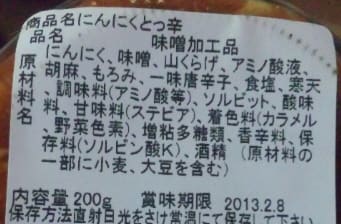 商品名にんにくとっ辛
品名 味噌加工品
原材料名 にんにく、味噌、山くらげ、アミノ酸液、
胡麻、もろみ、一味唐辛子、食塩、寒天
、調味料(アミノ酸等)、ソルビット、酸味
料、甘味料(ステビア)、着色料(カラメル
、野菜色素)、増粘多糖類、香辛料、保
存料(ソルビン酸K)、酒精 (原材料の
一部に小麦、大豆を含む)
内容量 200g 賞味期限 2013.2.8
保存方法直射日光をさけ常温にて保存して下さい